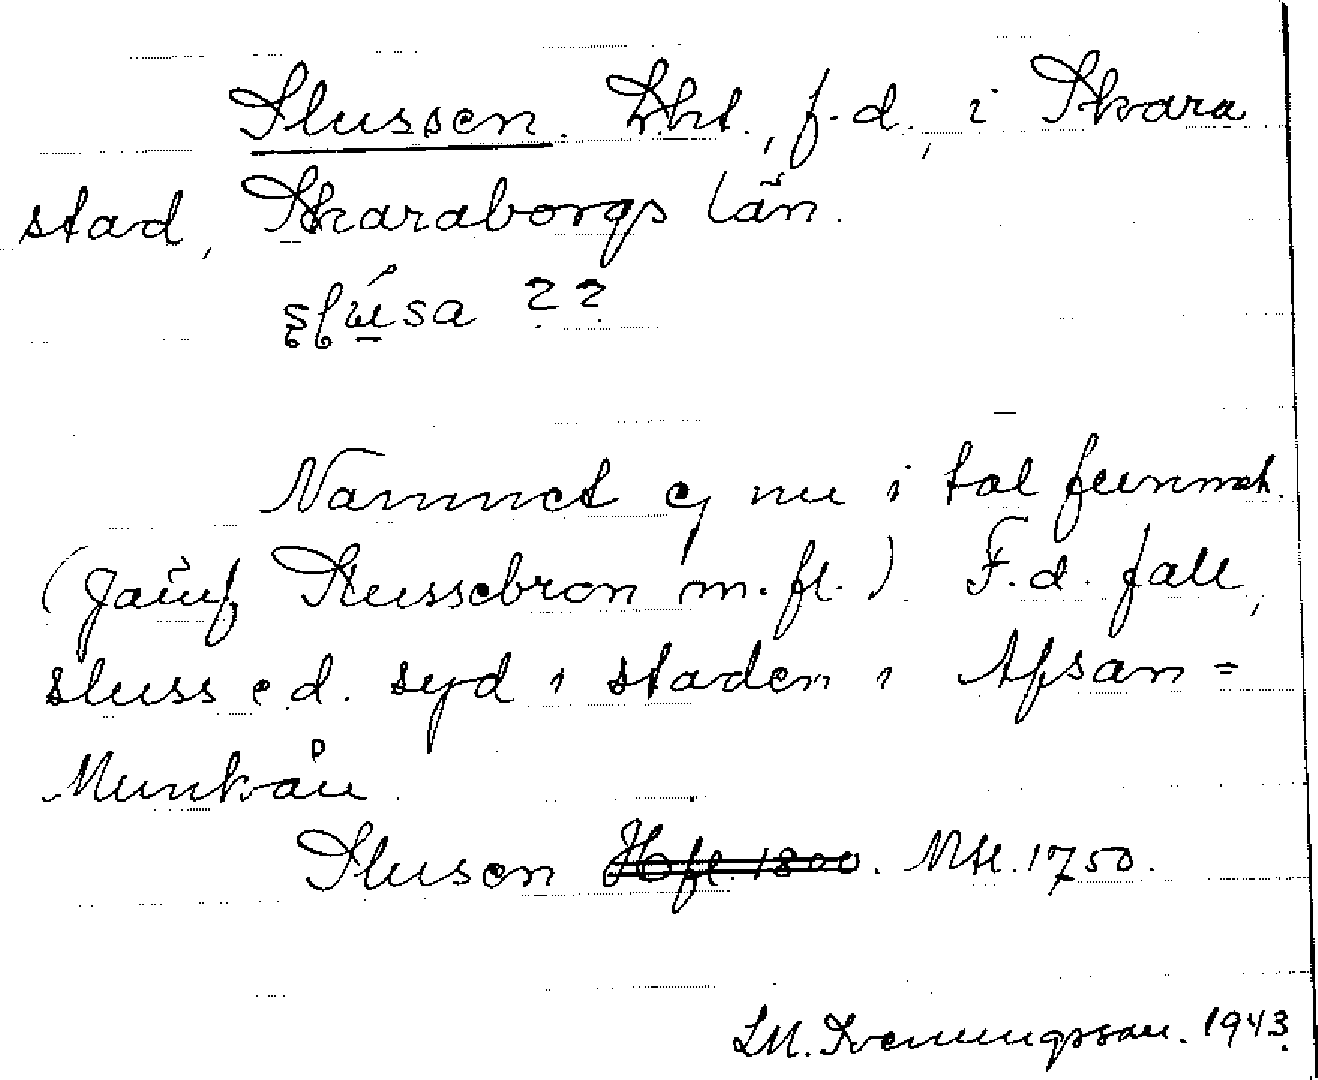 Slussen. Lht., f.d., i Skara
stad, Skaraborgs län.
slúsa ??
Namnet ej nu i tal funnet.
(Jämf. Slussebron m.fl.) F.d. fall,
sluss e.d. syd i staden i Afsan=
Munkån.
Slusen Hfl. 1800. Mtl. 1750.
Sveningsson. 1943.